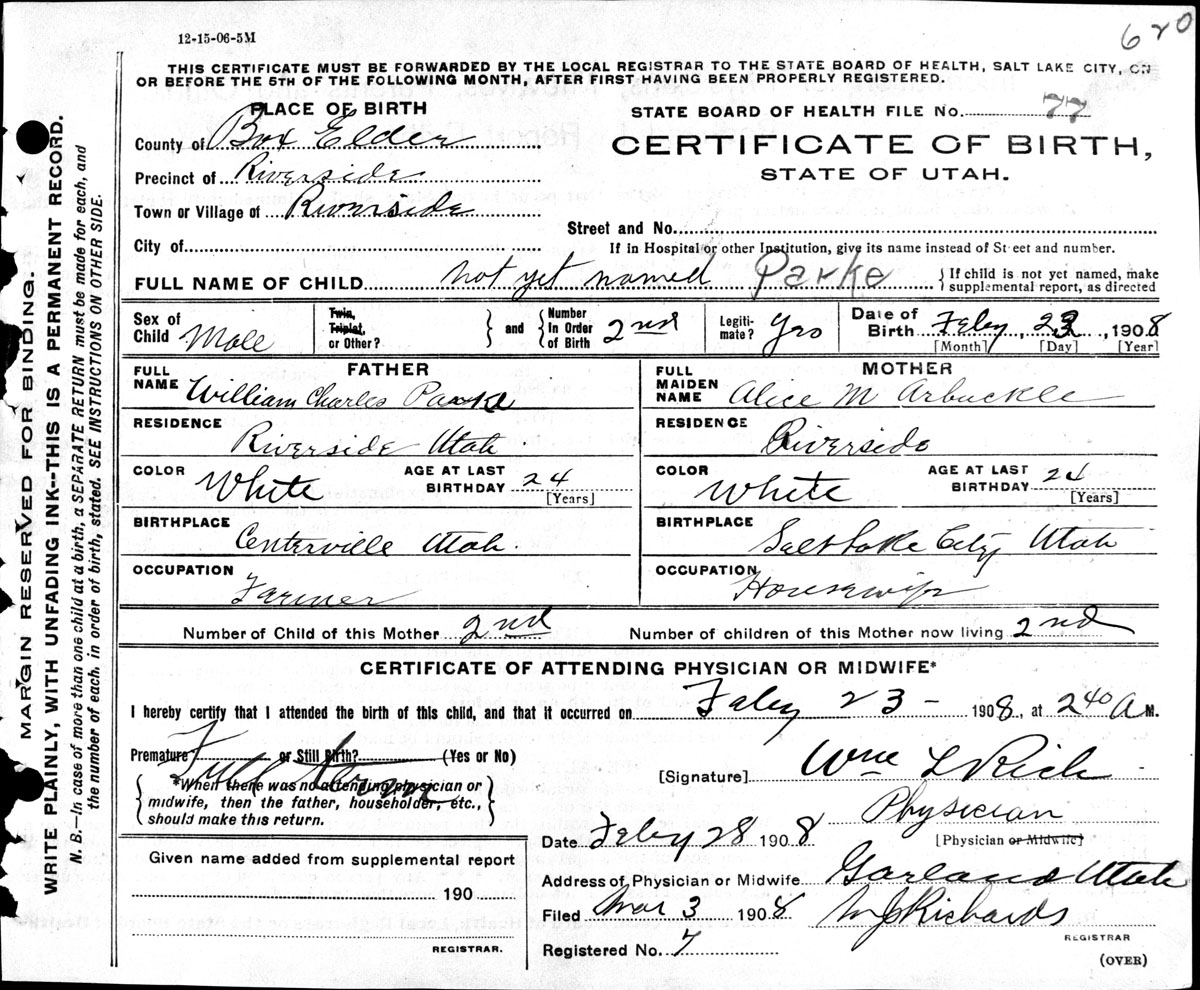 12-15-06-5M
620
THIS CERTIFICATE MUST BE FORWARDED BY THE LOCAL REGISTRAR TO THE STATE BOARD OF HEALTH, SALT LAKE CITY, ON
OR BEFORE THE 5TH OF THE FOLLOWING MONTH, AFTER FIRST HAVING BEEN PROPERLY REGISTERED.
PLACE OF BIRTH
County of Box Elder
Precinct of Riverside
Town or Village of Riverside
City of
STATE BOARD OF HEALTH FILE No. 77
CERTIFICATE OF BIRTH,
STATE OF UTAH.
Street and No.
If in Hospital or other Institution, give its name instead of Street and number.
FULL NAME OF CHILD not yet named Parke
{ If child is not yet named, make
supplemental report, as directed
Sex of Child Male
Twin, Triplet, or Other?
} and { Number In Order of Birth 2nd
Legiti-mate? Yes
Date of Birth Feby 23, 1908
[Month] [Day] [Year]
FATHER
FULL NAME William Charles Parke
RESIDENCE
Riverside Utah
COLOR White AGE AT LAST BIRTHDAY 24 [Years]
BIRTHPLACE
Centerville Utah.
OCCUPATION
Farmer
MOTHER
FULL MAIDEN NAME Alice M Arbuckle
RESIDENCE
Riverside
COLOR White AGE AT LAST BIRTHDAY 24 [Years]
BIRTHPLACE
Salt Lake City Utah
OCCUPATION
Housewife
Number of Child of this Mother 2nd Number of children of this Mother now living 2nd
CERTIFICATE OF ATTENDING PHYSICIAN OR MIDWIFE*
I hereby certify that I attended the birth of this child, and that it occurred on Feby 23 - 1908, at 2 40 A M.
Premature or Still Birth? (Yes or No)
Full term
{ *When there was no attending physician or
midwife, then the father, householder, etc.,
should make this return. }
[Signature] Wm L Rich
Physician
[Physician or Midwife]
Date Feby 28 1908
Address of Physician or Midwife Garland Utah
Filed Mar 3 1908 Richards
REGISTRAR
Registered No. 7
(OVER)
Given name added from supplemental report
190
REGISTRAR.
MARGIN RESERVED FOR BINDING.
WRITE PLAINLY, WITH UNFADING INK--THIS IS A PERMANENT RECORD.
N. B.—In case of more than one child at a birth, a SEPARATE RETURN must be made for each, and
the number of each, in order of birth, stated. SEE INSTRUCTIONS ON OTHER SIDE.